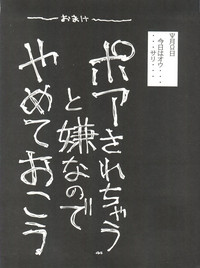 おまけ
�月�日
今日はオウ・・・
・・・サリ・・・・
ポアされちゃう
と嫌なので
やめておこう